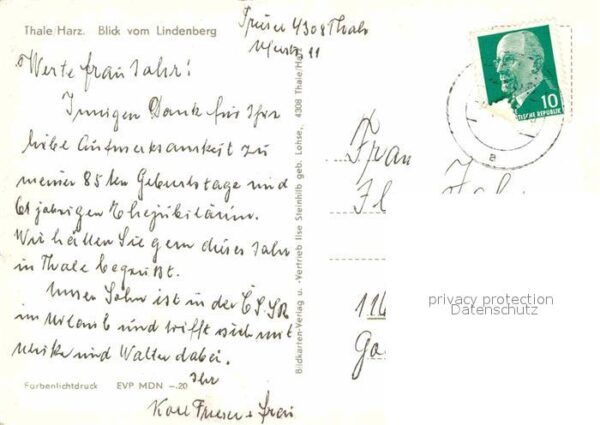 Thale/Harz. Blick vom Lindenberg
4308 Thale
11
Werte Frau Jahr!
Innigen Dank für Ihre
liebe Aufmerksamkeit zu
meiner 85ten Geburtstage und
61 jährigen Ehejubiläum.
Wir hätten Sie gern dieses Jahr
in Thale begrüßt.
Unser Sohn ist in der ČSSR
im Urlaub und trifft sich mit
Ulrike und Walter dabei.
Ihr
Karl + Frau
Farbenlichtdruck EVP MDN –.20
Bildkarten-Verlag u. -Vertrieb Ilse Steinhilb geb. Lohse, 4308 Thale/Harz
10
DEUTSCHE DEMOKRATISCHE REPUBLIK
a
Frau
116
privacy protection
Datenschutz